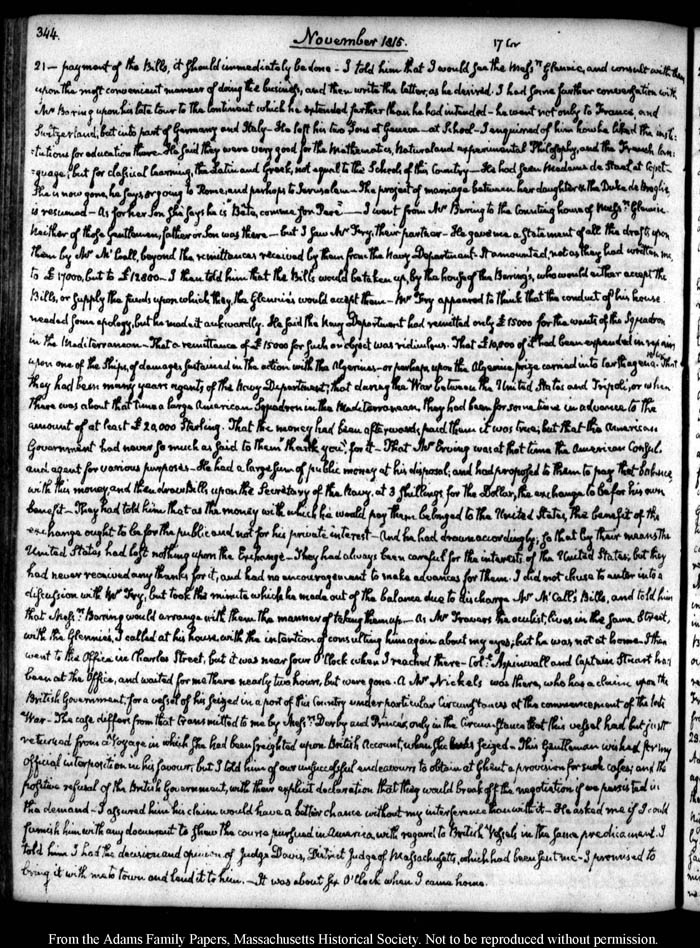 344.
November 1815.
17 br
21 — payment of the Bills, it should immediately be done. I told him that I would see the Messrs. Glennie, and consult with them
upon the most convenient manner of doing the business, and then write the letter, as he desired. I had some further conversation with
Mr Baring upon his late tour to the Continent which he extended farther than he had intended — he went not only to France and
Switzerland, but into part of Germany and Italy — He left his two Sons at Geneva — at School — I enquired of him how he liked the insti-
-tutions for education there. He said they were very good for the Mathematics, Natural and experimental Philosophy, and the French lan-
-guage; but for classical learning, the Latin and Greek, not equal to the Schools of this Country — He had seen Madame de Stael at Copet —
She is now gone, he says or going to Rome, and perhaps to Jerusalem — The project of marriage between her daughter & the Duke de Broglie
is resumed — As for her Son she says he is "Bête, comme son Père" — I went from Mr Baring to the Counting house of Messrs. Glennie
Neither of those Gentlemen, father or Son was there — but I saw Mr Fry, their partner — He gave me a Statement of all the drafts upon
them by Mr McCall, beyond the remittances received by them from the Navy Department. It amounted, not as they had written me,
to £17000, but to £12800 — I then told him that the Bills would be taken up, by the house of the Baring's, who would either accept the
Bills, or supply the funds upon which they, the Glennies would accept them — Mr Fry appeared to think that the conduct of his house
needed some apology, but he made it awkwardly. He said the Navy Department had remitted only £15000 for the wants of the Squadron
in the Mediterranean — That a remittance of £15000 for such an object was ridiculous. That £10,000 of it had been expended in repairing
upon one of the Ships, of damages sustained in the action with the Algerines — or perhaps upon the Algerine prize carried into Carthagena. That
they had been many years agents of the Navy Department; that during the War between the United States and Tripoli, or when
there was about that time a large American Squadron in the Mediterranean, they had been for some time in advance to the
amount of at least £20,000 Sterling. That the money had been afterwards paid them it was true; but that the American
Government had never so much as said to them "thank you", for it — That Mr Erving was at that time the American Consul,
and agent for various purposes — He had a large sum of public money at his disposal, and had proposed to them to pay that balance,
with this money and then draw Bills upon the Secretary of the Navy, at 3 shillings for the Dollar, the exchange to be for his own
benefit — They had told him that as the money with which he would pay them belonged to the United States, the benefit of the
exchange ought to be for the public and not for his private interest — And he had drawn accordingly; so that by their means the
United States had lost nothing upon the Exchange — They had always been careful for the interests of the United States; but they
had never received any thanks for it, and had no encouragement to make advances for them. I did not chuse to enter into a
discussion with Mr Fry, but took the minute which he made out of the balance due to discharge Mr McCall's Bills, and told him
that Messrs. Baring would arrange with them the manner of taking them up — As Mr Travers the oculist, lives in the same Street,
with the Glennies, I called at his house, with the intention of consulting him again about my eyes; but he was not at home. I then
went to the Office in Charles Street, but it was near four O'Clock when I reached there — Coll. Aspinwall and Captain Stuart had
been at the Office, and waited for me there nearly two hours, but were gone. A Mr Nickels was there, who has a claim upon the
British Government, for a vessel of his seized in a port of this Country under particular Circumstances at the commencement of the late
War — The case differs from that transmitted to me by Messrs. Derby and Princes, only in the Circumstance that this vessel had but just
returned from a Voyage in which she had been freighted upon British Account, when she was seized — This Gentleman wished for my
official interposition in his favour, but I told him of our unsuccessful endeavours to obtain at Ghent a provision for such cases; and the
positive refusal of the British Government, with their explicit declaration that they would break off the negotiation if we persisted in
the demand — I assured him his claim would have a better chance without my interference than with it — He asked me if I could
furnish him with any document to shew the course pursued in America with regard to British Vessels in the same predicament. I
told him I had the decision and opinion of Judge Davis, District Judge of Massachusetts, which had been sent me — I promised to
bring it with me to town and lend it to him. — It was about six O'Clock when I came home.
From the Adams Family Papers, Massachusetts Historical Society. Not to be reproduced without permission.